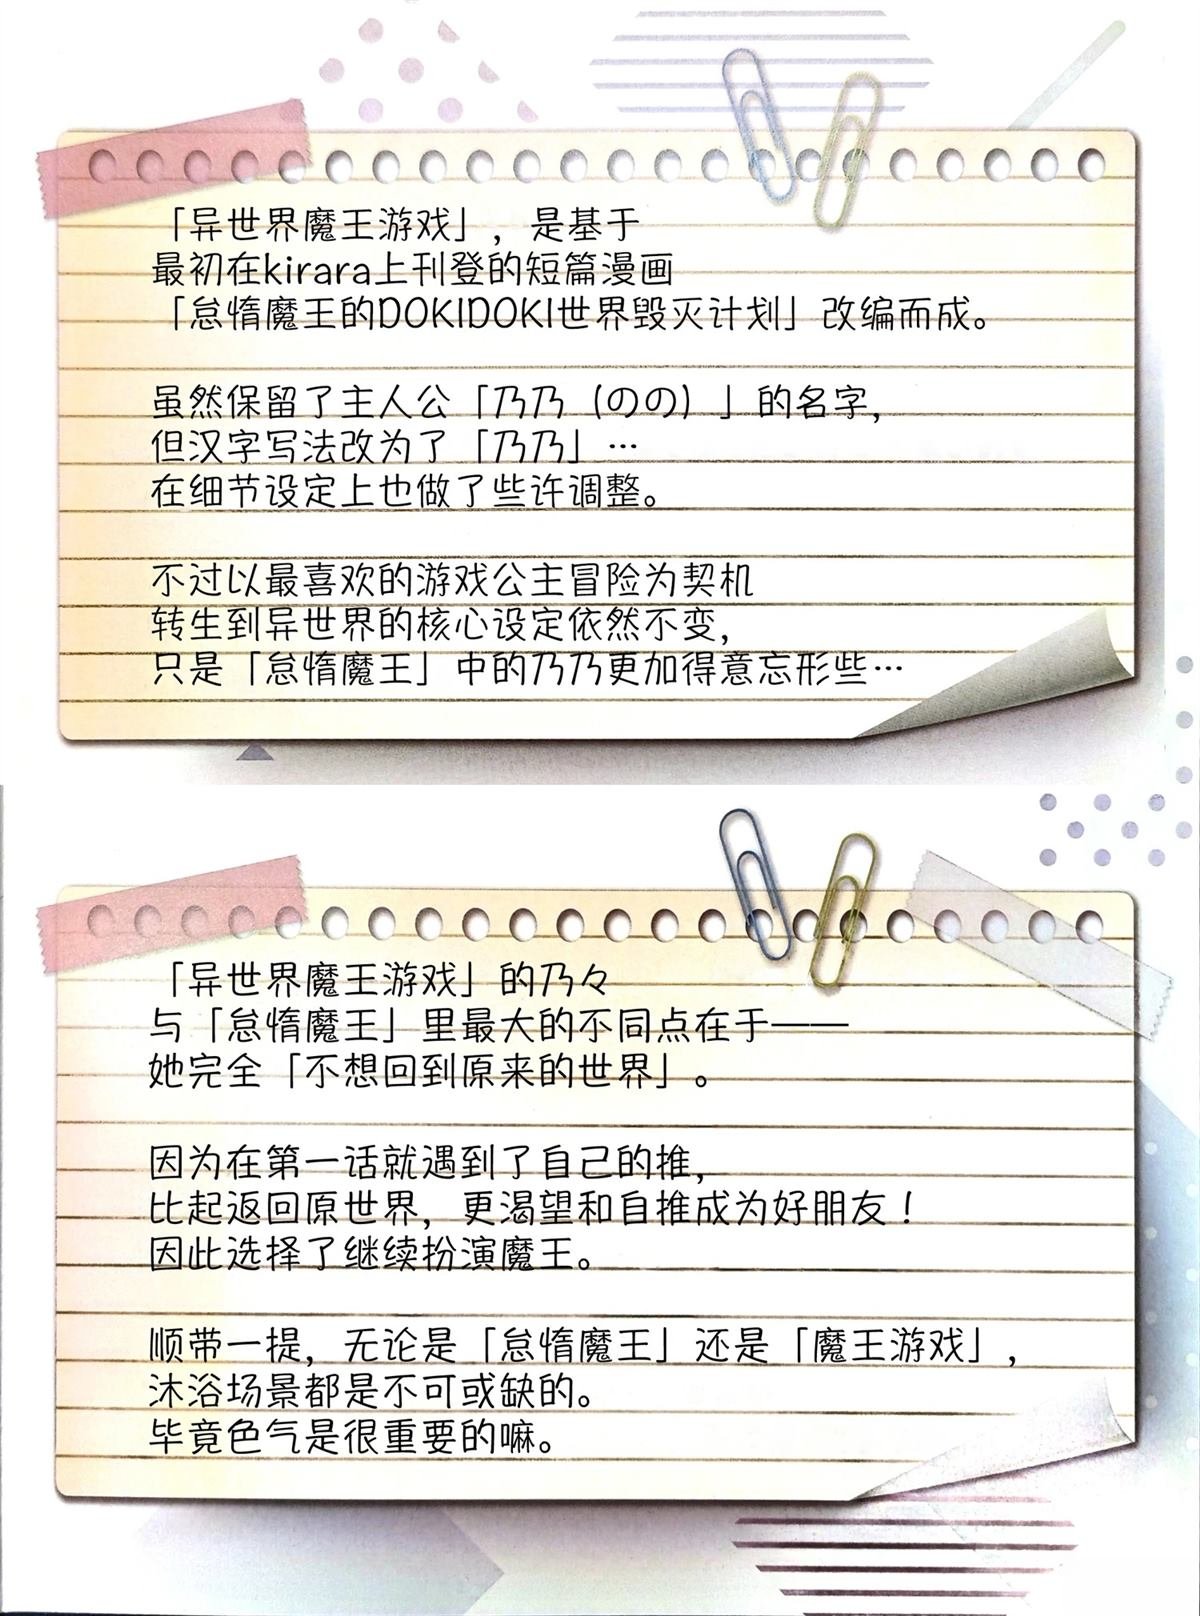 「异世界魔王游戏」，是基于
最初在kirara上刊登的短篇漫画
「怠惰魔王的DOKIDOKI世界毁灭计划」改编而成。
虽然保留了主人公「乃乃（のの）」的名字，
但汉字写法改为了「乃乃」…
在细节设定上也做了些许调整。
不过以最喜欢的游戏公主冒险为契机
转生到异世界的核心设定依然不变，
只是「怠惰魔王」中的乃乃更加得意忘形些…
「异世界魔王游戏」的乃々
与「怠惰魔王」里最大的不同点在于——
她完全「不想回到原来的世界」。
因为在第一话就遇到了自己的推，
比起返回原世界，更渴望和自推成为好朋友！
因此选择了继续扮演魔王。
顺带一提，无论是「怠惰魔王」还是「魔王游戏」，
沐浴场景都是不可或缺的。
毕竟色气是很重要的嘛。